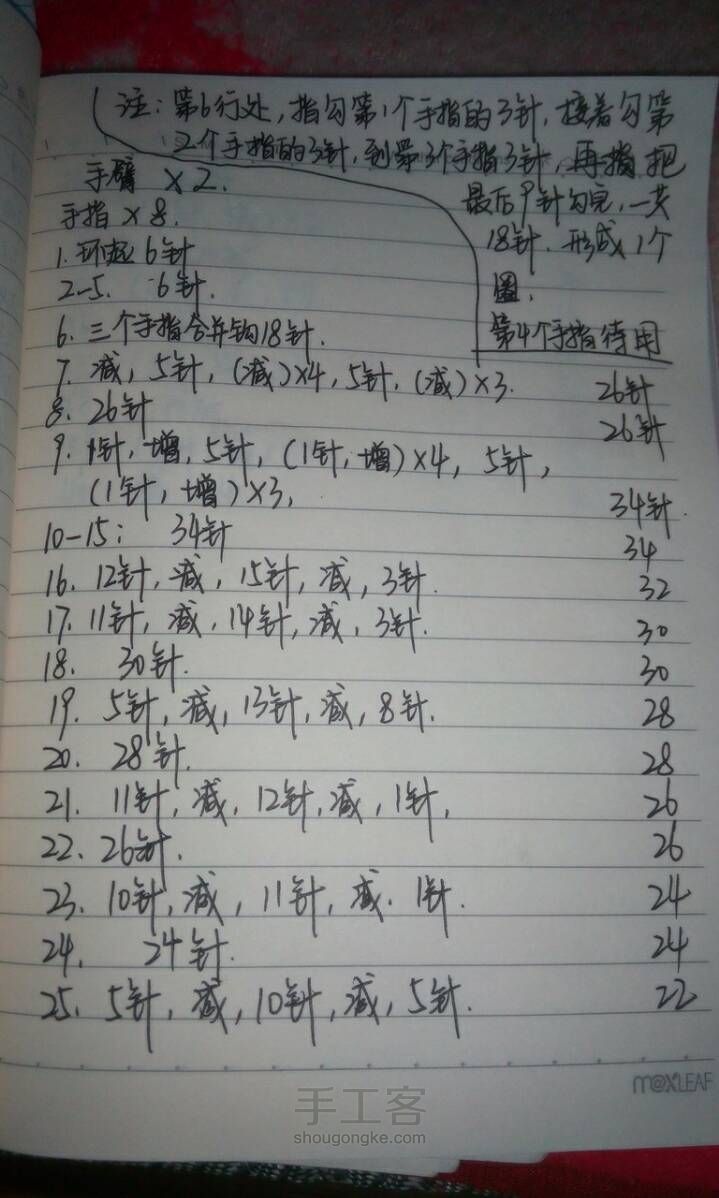 注：第6行处，指勾第1个手指的3针，接着勾第
2个手指的3针，到第3个手指3针，再指把
最后9针勾完，一共
18针．形成1个
圈．
第4个手指待用
手臂 ×2．
手指 ×8．
1．环起6针
2-5． 6针．
6．三个手指合并钩18针．
7．减，5针，（减）×4，5针，（减）×3． 26针
8．26针 26针
9．1针，增，5针，（1针，增）×4，5针，
（1针，增）×3， 34针．
10-15： 34针 34
16．12针，减，15针，减，3针． 32
17．11针，减，14针，减，3针． 30
18． 30针． 30
19．5针，减，13针，减，8针． 28
20． 28针． 28
21．11针，减，12针，减，1针， 26
22．26针． 26
23．10针，减，11针，减．1针． 24
24． 24针． 24
25．5针，减，10针，减，5针． 22
m@x'LEAF
手工客
shougongke.com